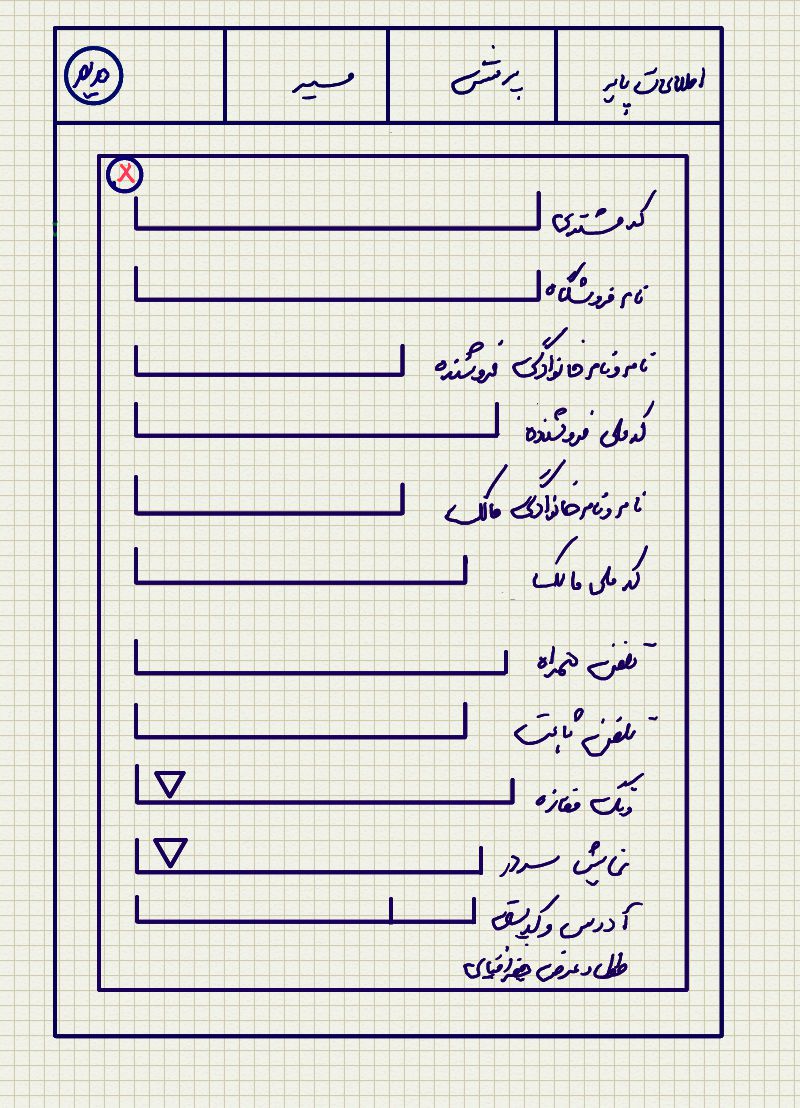 اطلاعات پایه
پرسش
مسیر
مدیر
X
کد مشتری
نام فروشگاه
نام و نام خانوادگی فروشنده
کد ملی فروشنده
نام و نام خانوادگی مالک
کد ملی مالک
تلفن همراه
تلفن ثابت
مغازه
نمایش سردر
آدرس و کدپستی
طول و عرض جغرافیای